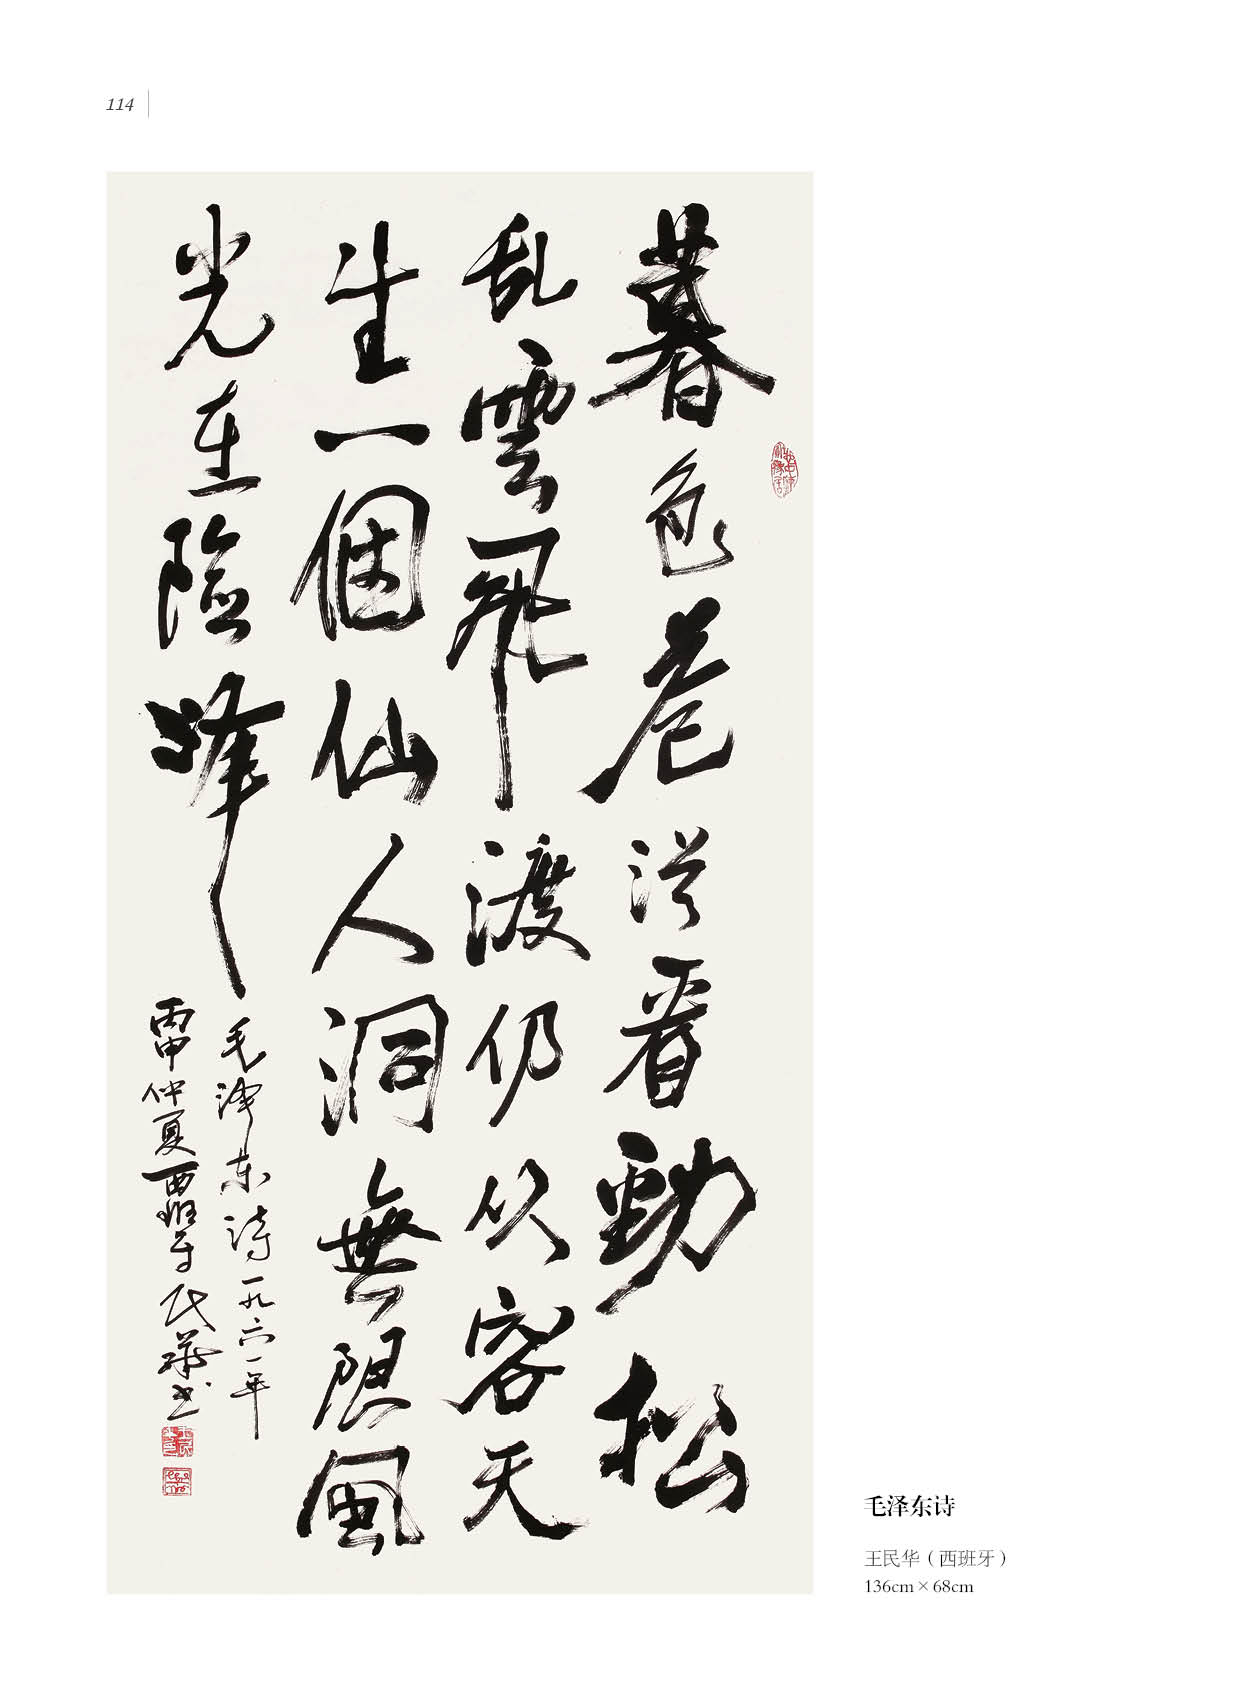 114
暮色苍茫看勁松
乱雲飛渡仍从容天
生一個仙人洞無限風
光在險峰
毛泽东诗一九六一年
丙申仲夏西班牙民華书
毛泽东诗
王民华（西班牙）
136cm×68cm